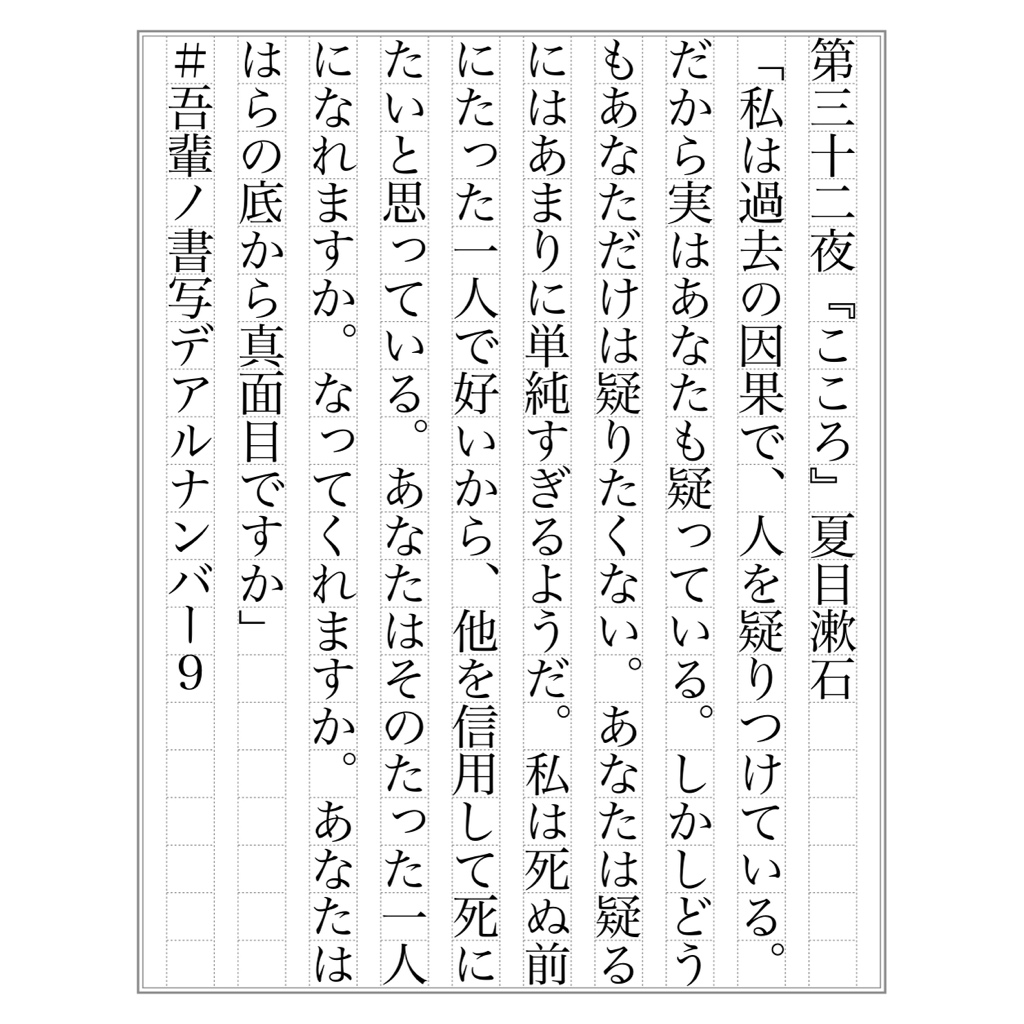 第三十二夜『こころ』夏目漱石
「私は過去の因果で、人を疑りつけている。
だから実はあなたも疑っている。しかしどう
もあなただけは疑りたくない。あなたは疑る
にはあまりに単純すぎるようだ。私は死ぬ前
にたった一人で好いから、他を信用して死に
たいと思っている。あなたはそのたった一人
になれますか。なってくれますか。あなたは
はらの底から真面目ですか」
＃吾輩ノ書写デアルナンバー９